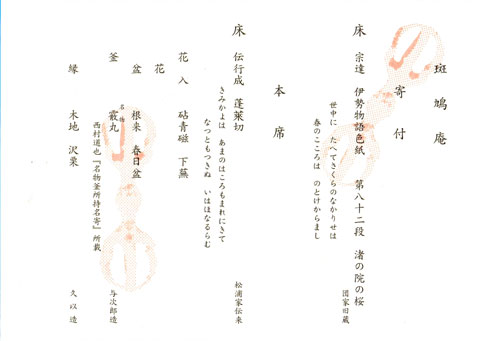 斑鳩庵
寄付
床 宗達 伊勢物語色紙 第八十二段 渚の院の桜
世中に たへてさくらのなかりせは
春のこころは のとけからまし
団家旧蔵
本席
床 伝行成 蓬莱切
きみかよは あまのはころもまれにきて
なつともつきぬ いはほなるらむ
松浦家伝来
花入 砧青磁 下蕪
花
盆 根来 春日盆
釜 名物 霰丸 与次郎造
西村道也『名物釜所持名寄』所載
縁 木地 沢栗 久以造